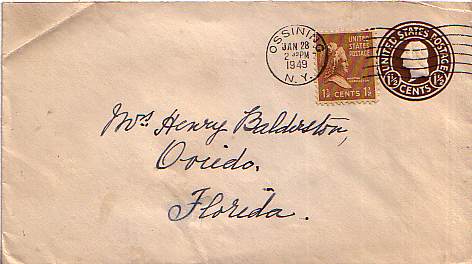 OSSINING
JAN 28
2 30 PM
1949
N.Y.
UNITED
STATES
POSTAGE
1½ CENTS 1½
UNITED STATES POSTAGE
1½ CENTS 1½
Mrs Henry Balderston,
Oviedo,
Florida.